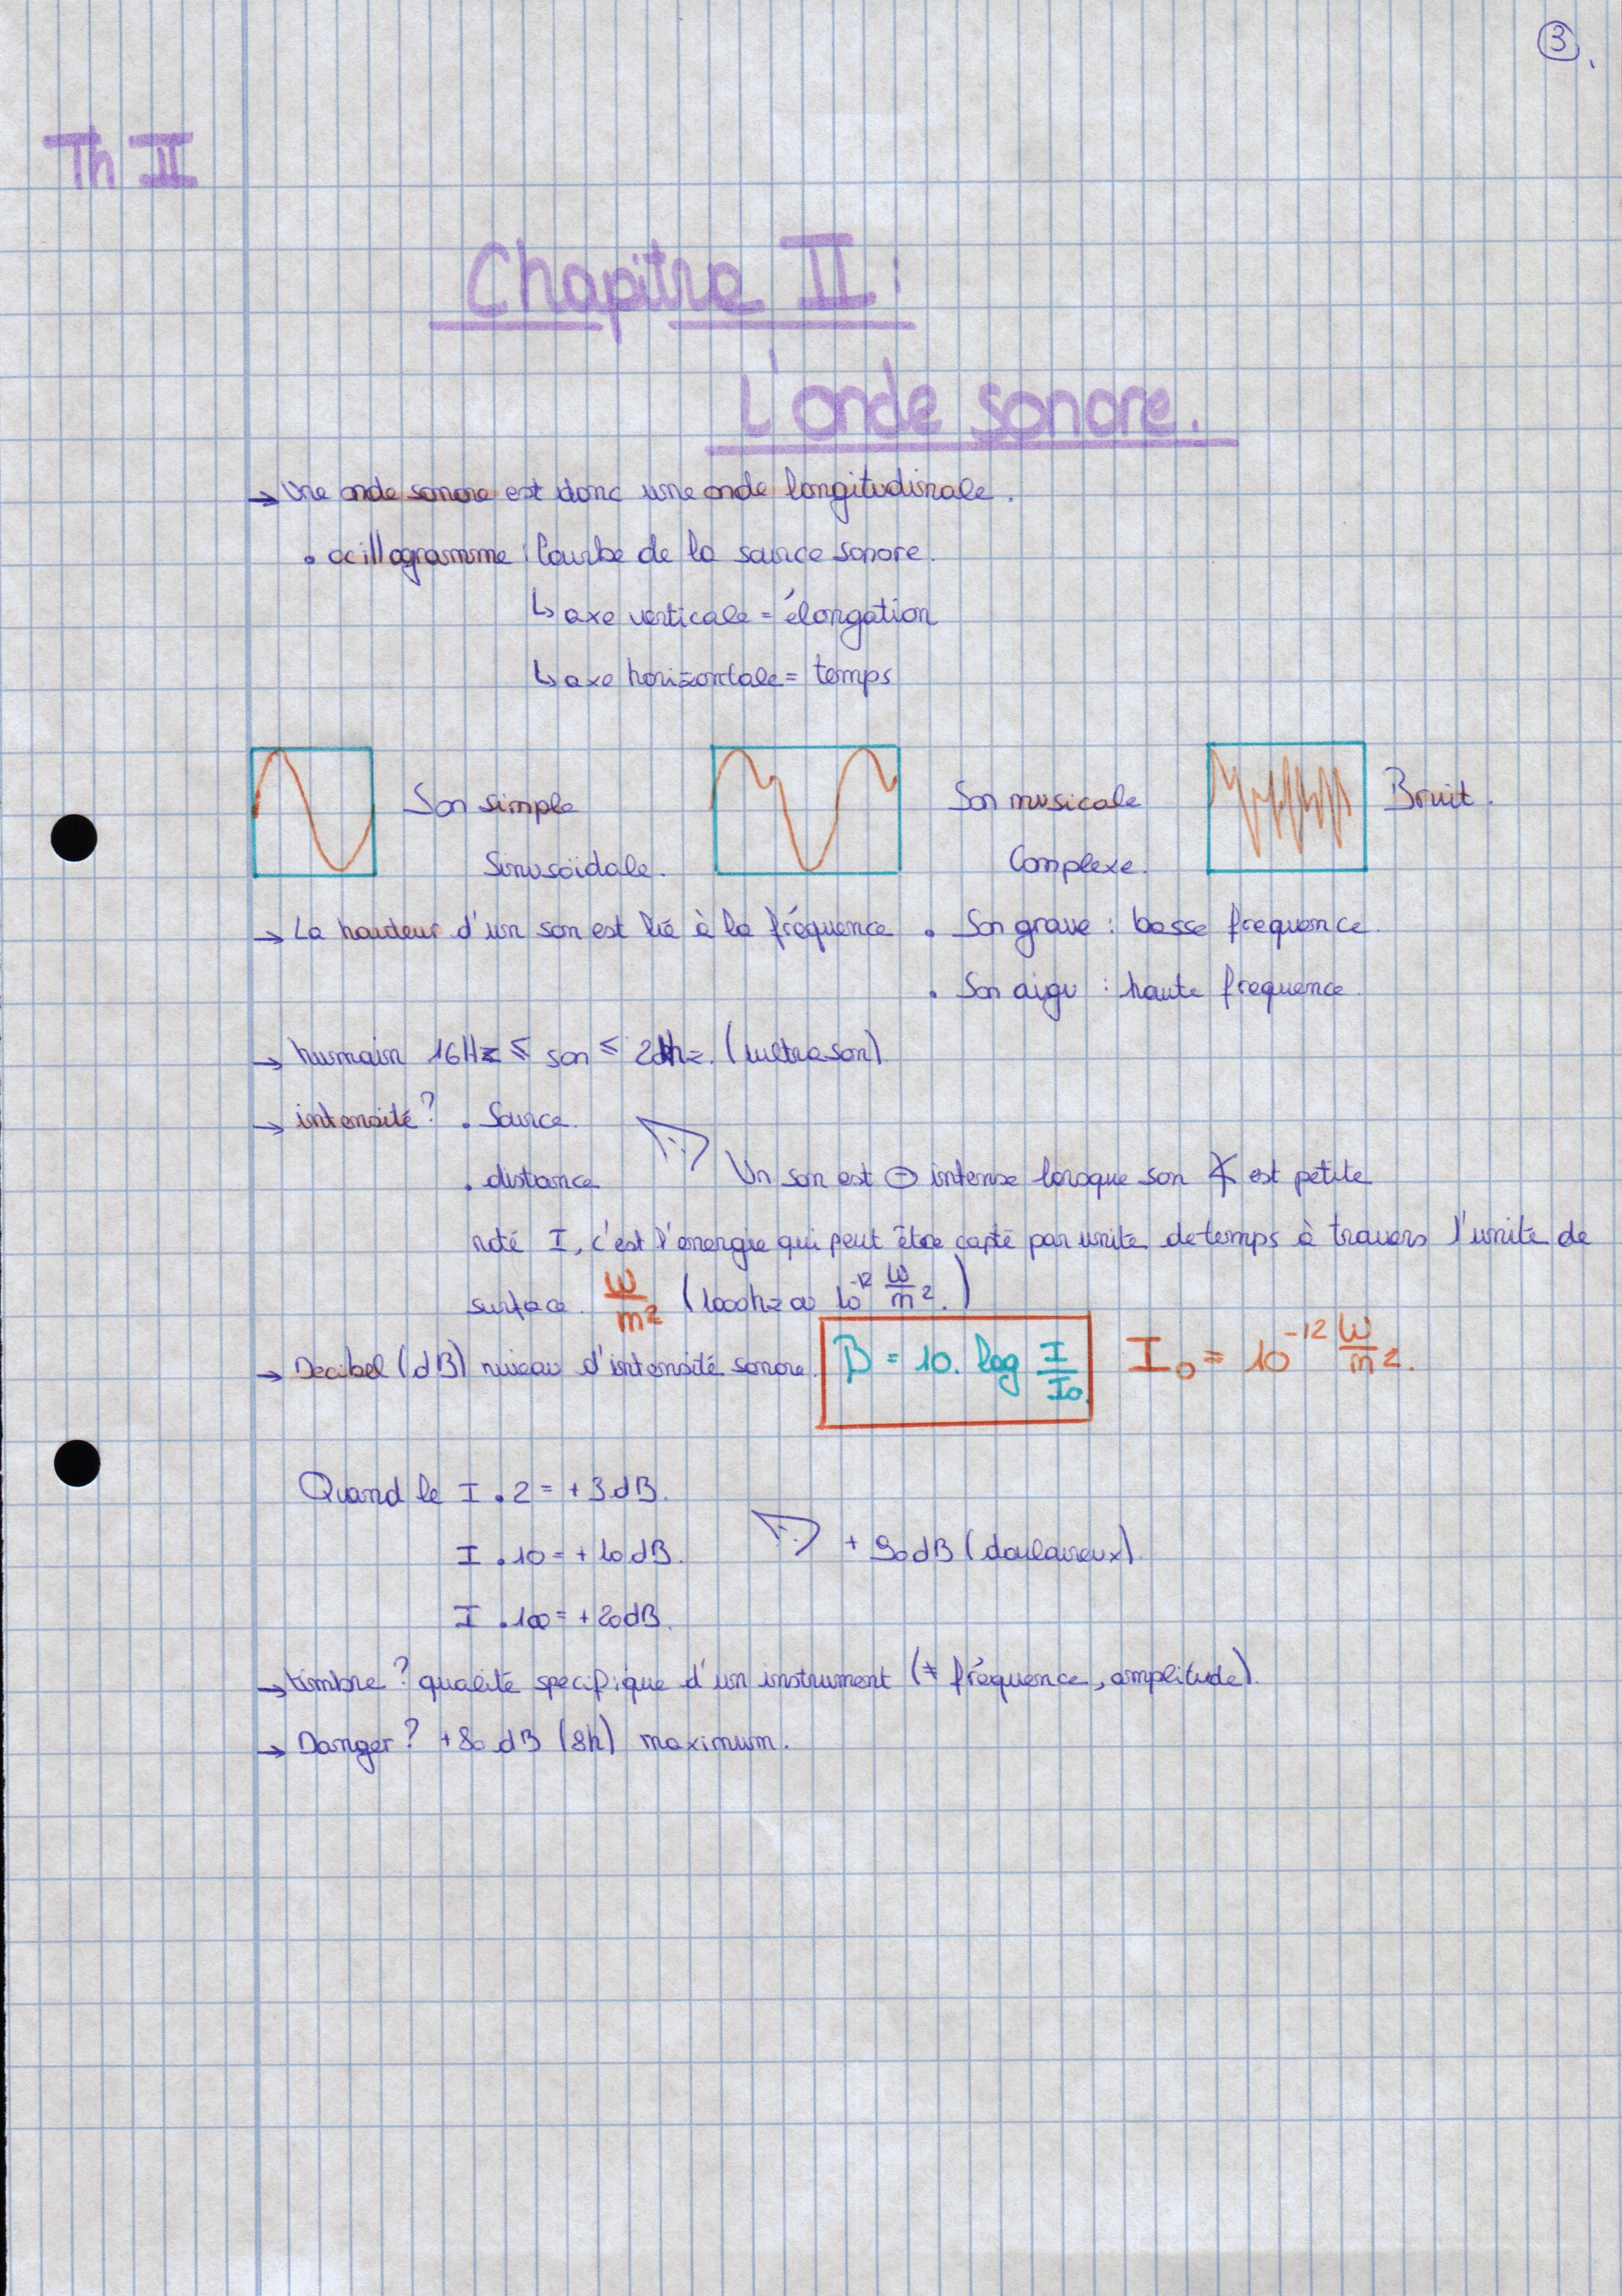 3
Th II
Chapitre II :
L'onde sonore.
→ Une onde sonore est donc une onde longitudinale.
• ocillogramme : Courbe de la source sonore.
↳ axe verticale = élongation
↳ axe horizontale = temps
Son simple Son musicale Bruit.
Sinusoïdale. Complexe.
→ La hauteur d'un son est lié à la fréquence • Son grave : basse frequence.
• Son aigu : haute frequence.
→ humain 16Hz ≤ son ≤ (ultrason)
→ intensité ? • Source.
• distance Un son est ⊖ intense lorsque son est petite
noté I, c'est l'énergie qui peut être capté par unite de temps à travers l'unite de
surface. W/m² (1000hz 10⁻¹² W/m².)
→ Decibel (dB) niveau d'intensité sonore. B = 10. log I/I₀. I₀ = 10⁻¹² W/m².
Quand le I . 2 = + 3 dB.
I . 10 = + 10 dB. ! + 90 dB (douloureux).
I . 100 = + 20 dB.
→ timbre ? qualite specifique d'un instrument (≠ fréquence, amplitude).
→ Danger ? + 80 dB (8h) maximum.